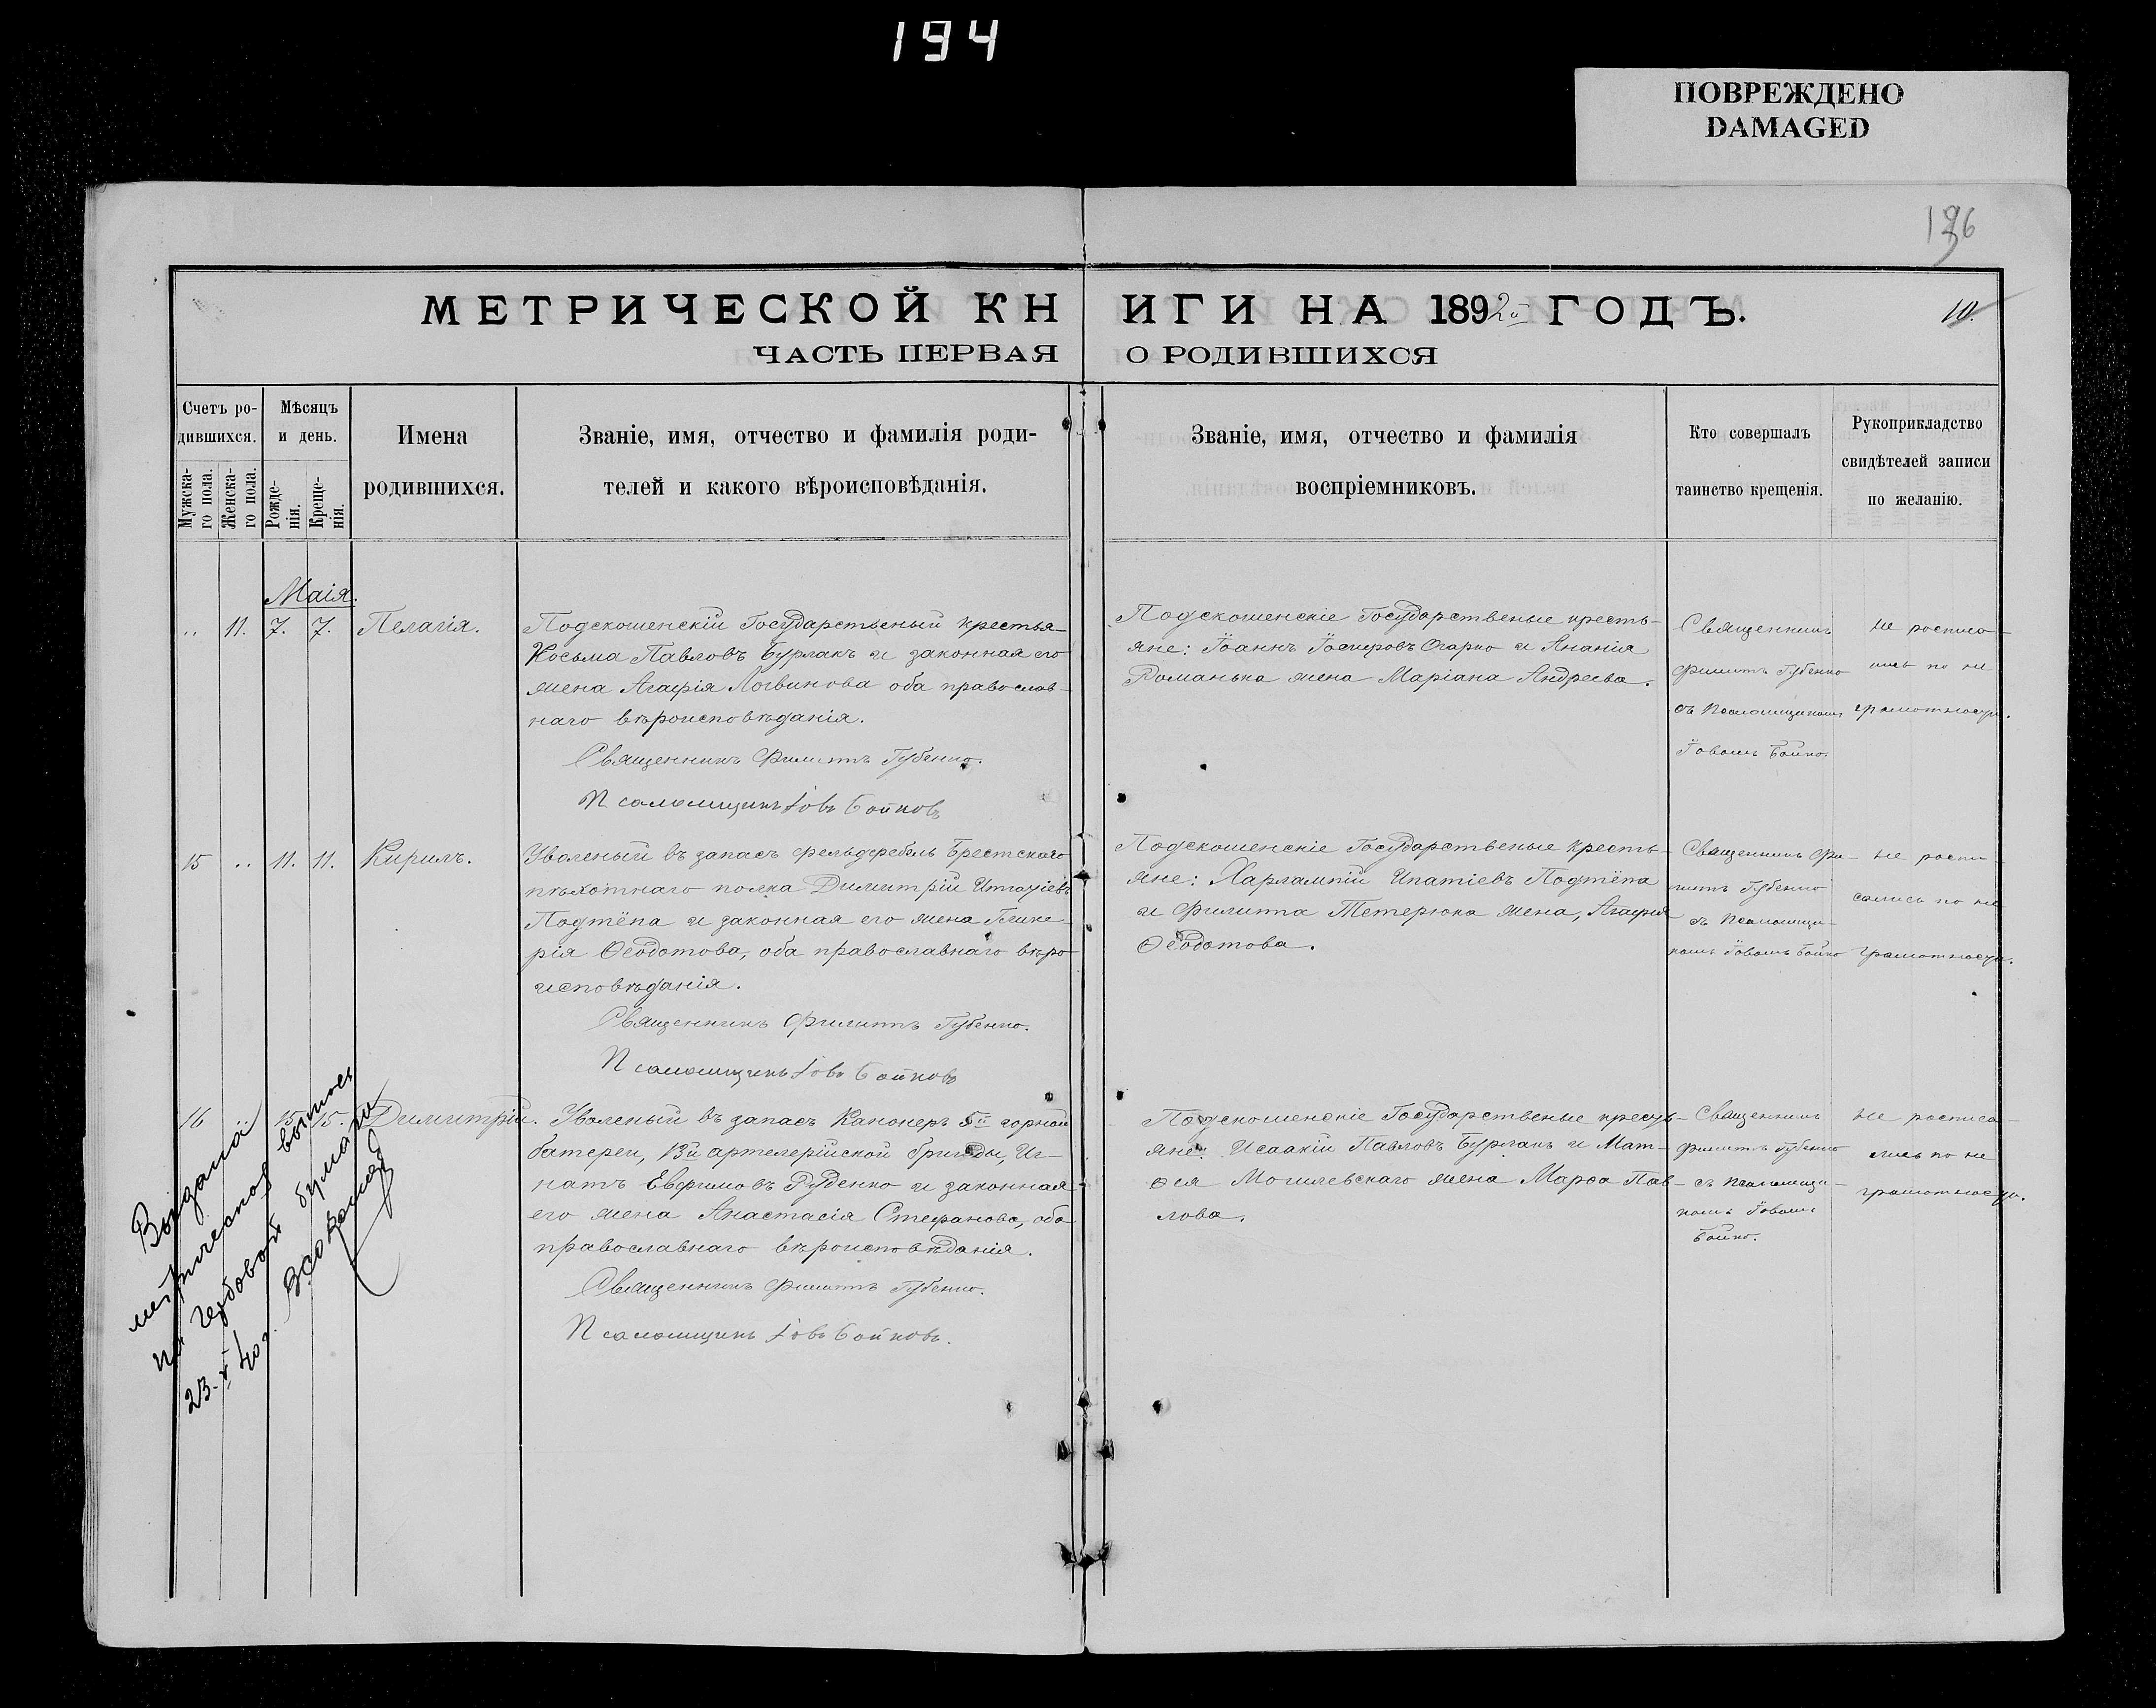 194
ПОВРЕЖДЕНО
DAMAGED
196
МЕТРИЧЕСКОЙ КНИГИ НА 1892й ГОДЪ.
10.
ЧАСТЬ ПЕРВАЯ О РОДИВШИХСЯ
Счетъ ро-
дившихся.
Мужска-
го пола.
Женска-
го пола.
Мѣсяцъ
и день.
Рожде-
нія.
Креще-
нія.
Имена
родившихся.
Званіе, имя, отчество и фамилія роди-
телей и какого вѣроисповѣданія.
Званіе, имя, отчество и фамилія
воспріемниковъ.
Кто совершалъ
таинство крещенія.
Рукоприкладство
свидѣтелей записи
по желанію.
Маія.
.. 11. 7. 7. Пелагія.
Подскошенскій Государственый крестья-
Косьма Павловъ Бурлакъ и законная его
жена Агафія Логвинова оба православ-
наго вѣроисповѣданія.
Священникъ Филиппъ Губенко.
Псаломщикъ Іовъ Бойковъ
Подскошенскіе Государственые кресть-
яне: Іоаннъ Огарко и Ананія
Романька жена Маріана Андреева.
Священникъ
Филиппъ Губенко
съ Псаломщикомъ
Іовомъ Бойко.
не росписа-
лись по не
грамотности.
15 .. 11. 11. Кирилъ.
Уволеный въ запасъ фельдфебель Брестскаго
пѣхотнаго полка Димитрій Ипатіевъ
Подтёпа и законная его жена Глике-
рія Ѳеодотова, оба православнаго вѣро
исповѣданія.
Священникъ Филиппъ Губенко.
Псаломщикъ Іовъ Бойковъ
Подскошенскіе Государственые кресть-
яне: Харлампій Ипатіевъ Подтёпа
и Филиппа Тетерюка жена, Агафія
Ѳеодотова.
Священникъ Фи-
липпъ Губенко
съ Псаломщи-
комъ Іовомъ Бойко
не роспи-
сались по не
грамотности.
16 .. 15. 15. Димитрій.
Уволеный въ запасъ Канонеръ 5й горной
батереи, 13й артелерійской бригады, Иг-
натъ Евфимовъ Руденко и законная
его жена Анастасія Стефанова, оба
православнаго вѣроисповѣданія.
Священникъ Филиппъ Губенко.
Псаломщикъ Іовъ Бойковъ.
Подскошенскіе Государственые кресть-
яне: Исаакій Павловъ Бурлакъ и Мат-
ѳея Могилевскаго жена Марѳа Пав-
лова.
Священникъ
Филиппъ Губенко
съ Псаломщи-
комъ Іовомъ
Бойко.
не росписа-
лись по не
грамотности.
Выдана
метрическая выпись
на гербовой бумаги
23.